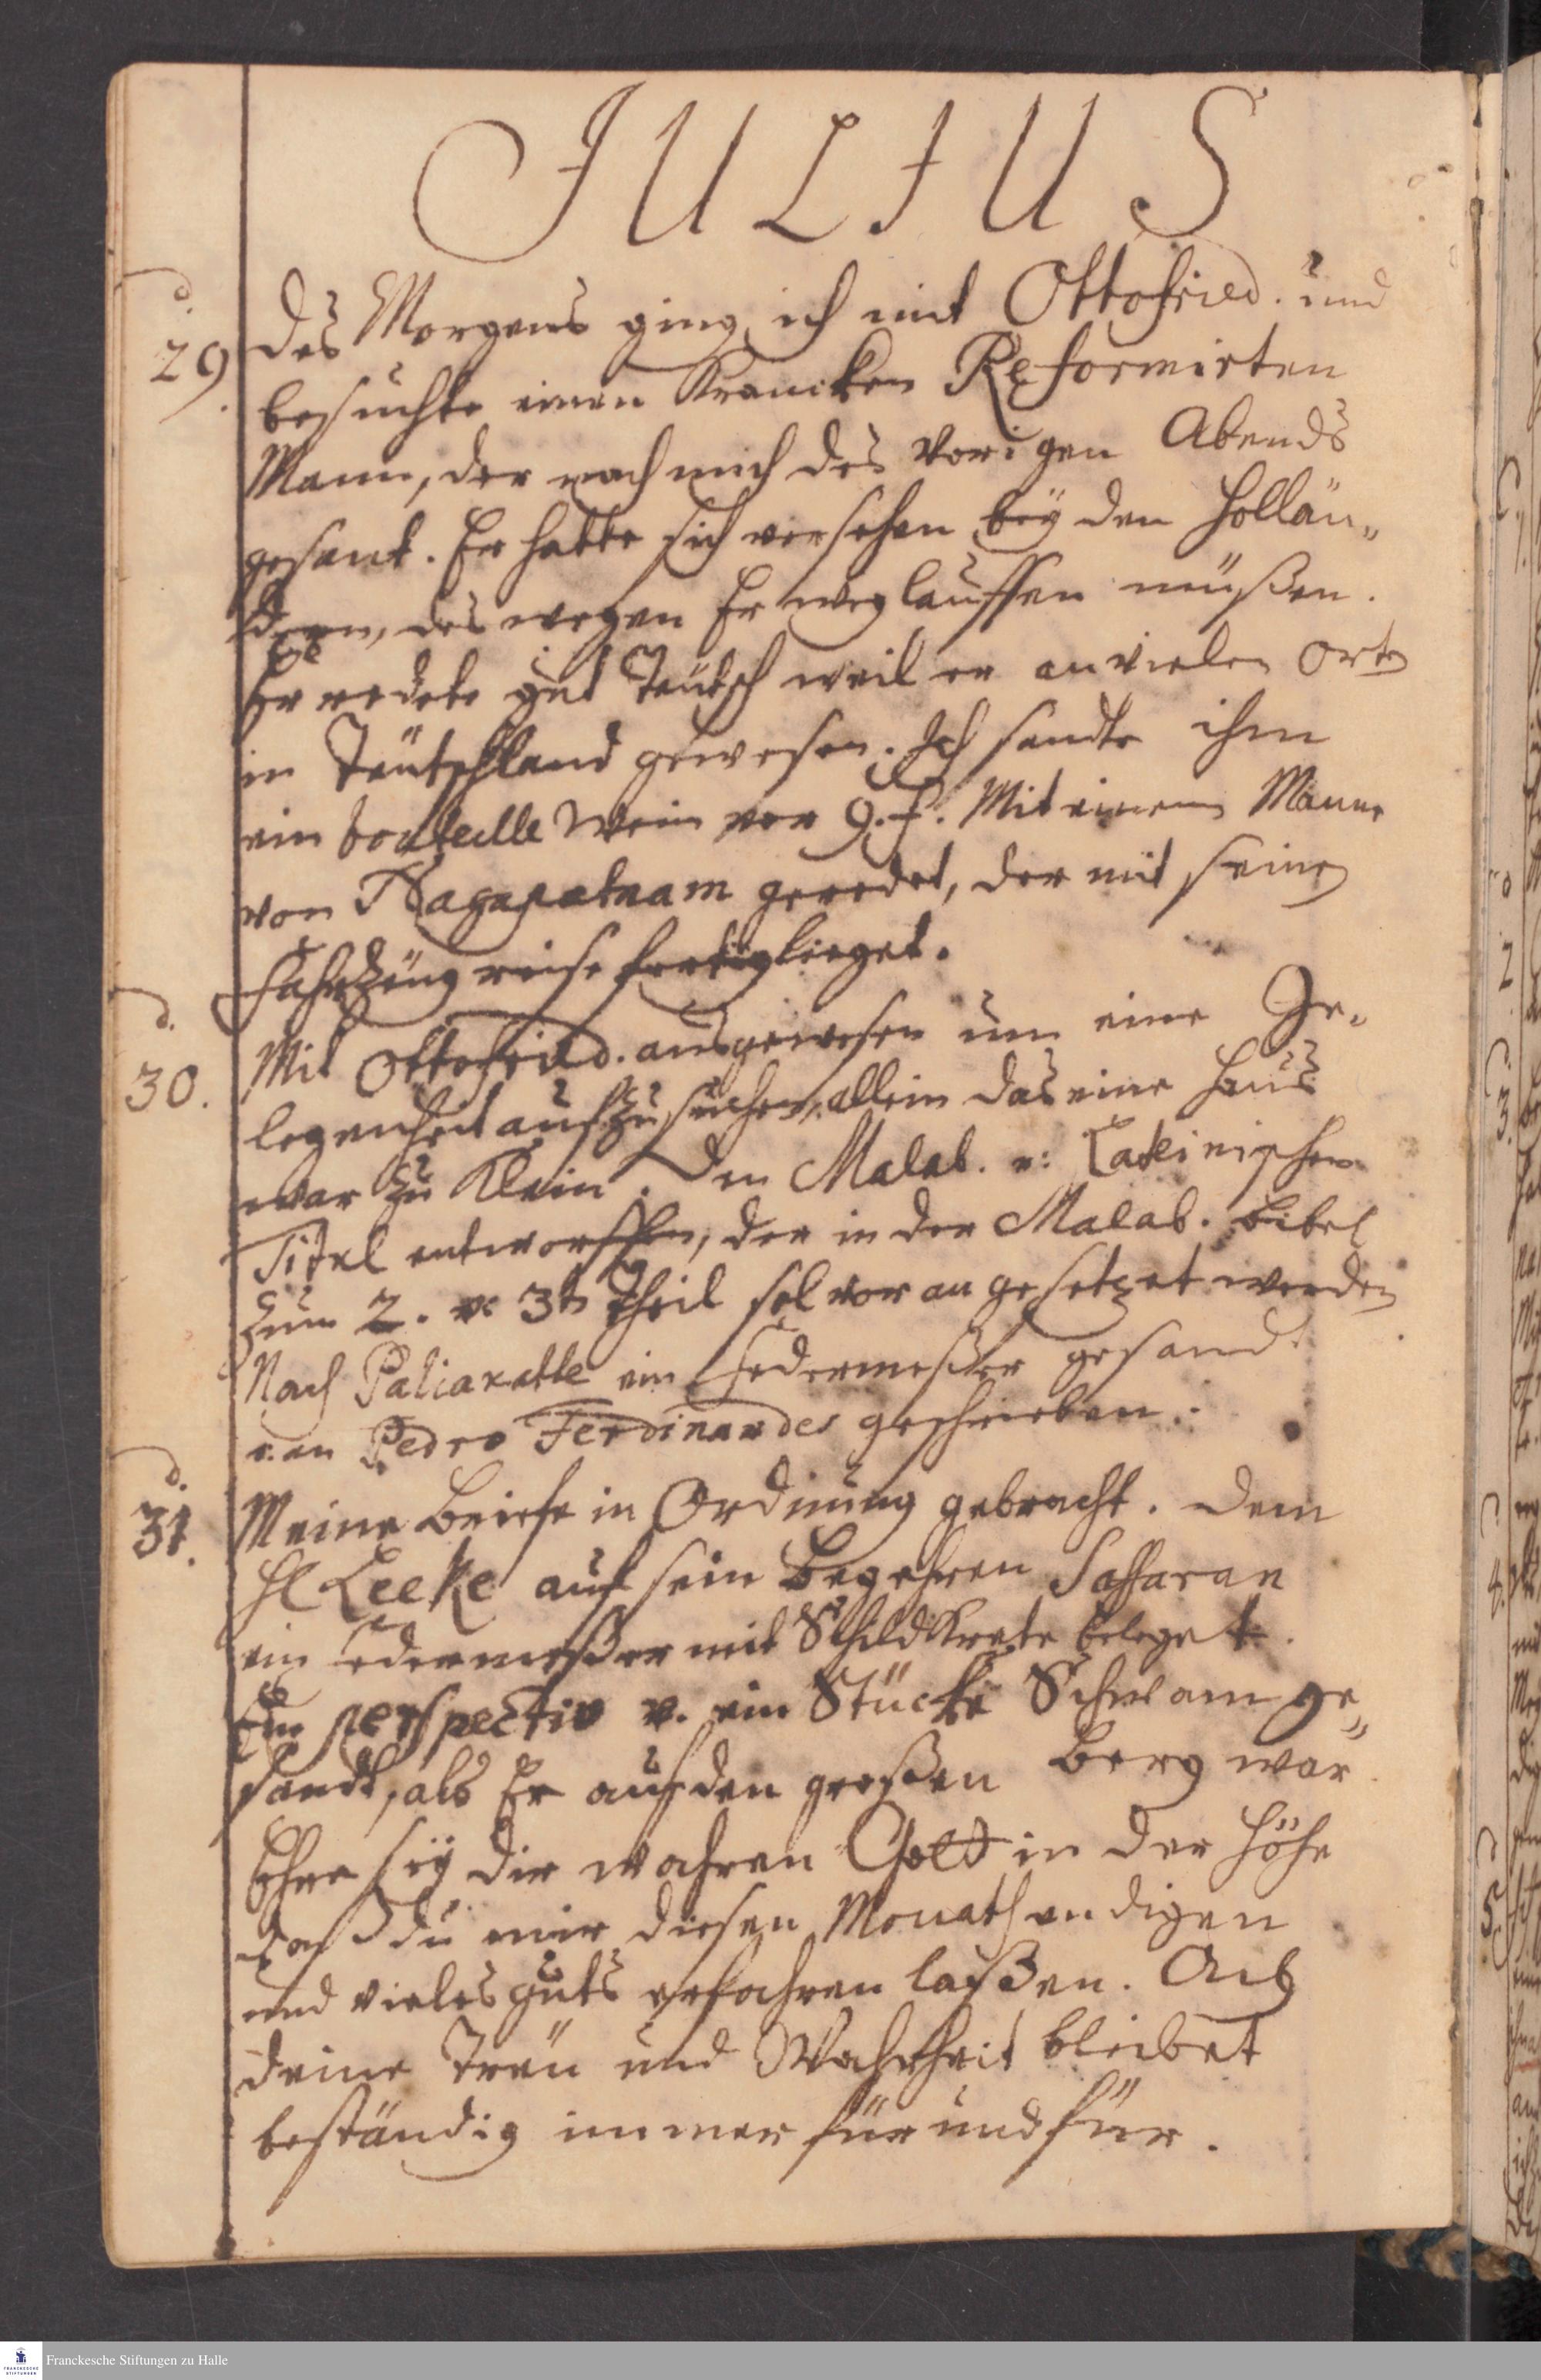 JULIUS
d. 29. Des Morgens ging ich mit Ottofried. und
besuchte einen Krancken Reformirten
Mann, der nach mich des Vorigen Abends
gesant. Er hatte sich versehen beÿ den Hollän-
dern, des wegen Er weglauffen müßen.
Er redete gut Teutsch weil er an vielen Orten
in Teutschland gewesen. Ich sandte ihm
ein bouteille Wein vor 9. f. Mit einem Manne
von Nagapatnam geredet, der mit seinen
Fahrzeug reisefertig lieget.
d. 30. Mit Ottofried. ausgewesen um eine Ge-
legenheit aufzusuchen, allein das eine Haus
war zu Klein. Den Malab. u: Lateinischen
Titul entworffen, der in der Malab. Bibel
zum 2. u: 3ten Theil sol voran gesetzet werden
Nach Paliacatte ein Federmeßer gesand.
u. an Pedro Ferdinandes geschrieben.
d. 31. Meine Briefe in Ordnung gebracht. Dem
H Leeke auf sein Begehren Saffaran
ein Federmeßer mit Schildkrete beleget.
Ein perspectiv u. ein Stücke Schwam ge-
sandt, als Er auf den großen Berg war
Ehre seÿ dir wahren Gott in der Höhe
daß du mir diesen Monath endigen
und vieles guts erfahren laßen. Ach
deine Treu und Wahrheit bleibet
beständig immer für und für.
Franckesche Stiftungen zu Halle